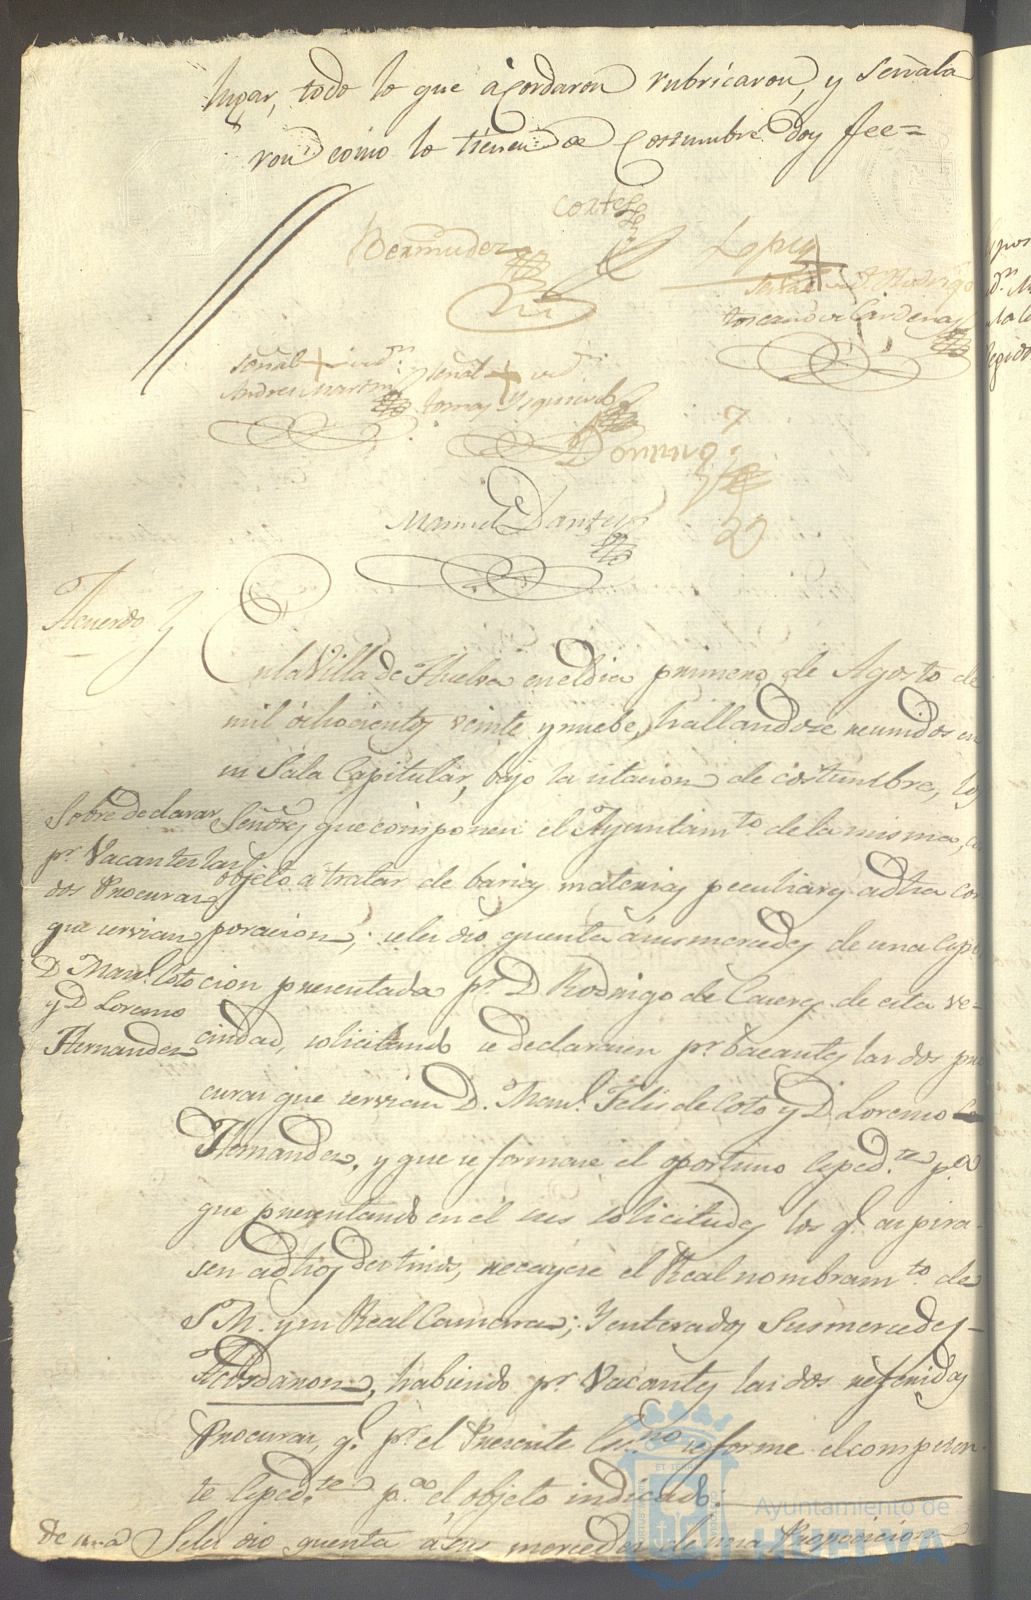 lugar, todo lo que acordaron rubricaron, y señala
ron como lo tienen de costumbre doy fee=
Cortes
Bermudez
Lopez
Señal + de Dn. Rodrigo
toscano de Cardenas
Señal + de Dn.
Andres Martin
Señal + de Dn.
Tomas Ysquierdo
Domingo
Manuel
Acuerdo
En la Villa de Huelva en el dia primero de Agosto de
mil ochocientos veinte y nuebe, hallandose reunidos en
su Sala Capitular, bajo la citacion de costumbre, los
Señores que componen el Ayuntamto. de la misma,
objeto a tratar de barias materias peculiares a dha cor
poracion; se les dio quenta á sus mercedes de una Espo
cion presentada pr. D Rodrigo de Cueres de esta ve-
cindad, solicitando se declarasen pr. bacantes las dos pro
curas que servian D. Manl. Felis de Coto y D. Lorenso
Hernandes, y que se formase el oportuno Espedte. pa.
que presentando en él sus solicitudes los q. aspira-
sen a dhos destinos, recayese el Real nombramto. de
S M. y su Real Camara; Y enterados Sus mercedes-
Acordaron, habiendo pr. Vacantes las dos referidas
Procuras, q. pr. el Presente Esno. se forme el competen-
te Espedte. pa. el objeto indicado.
Se les dio quenta a sus mercedes de una Proposicion
Sobre declarar
pr. Vacantes las
dos Procuras
que servian
D Manl. Coto
y D Lorenso
Hernandes
de una
Ayuntamiento de
HUELVA